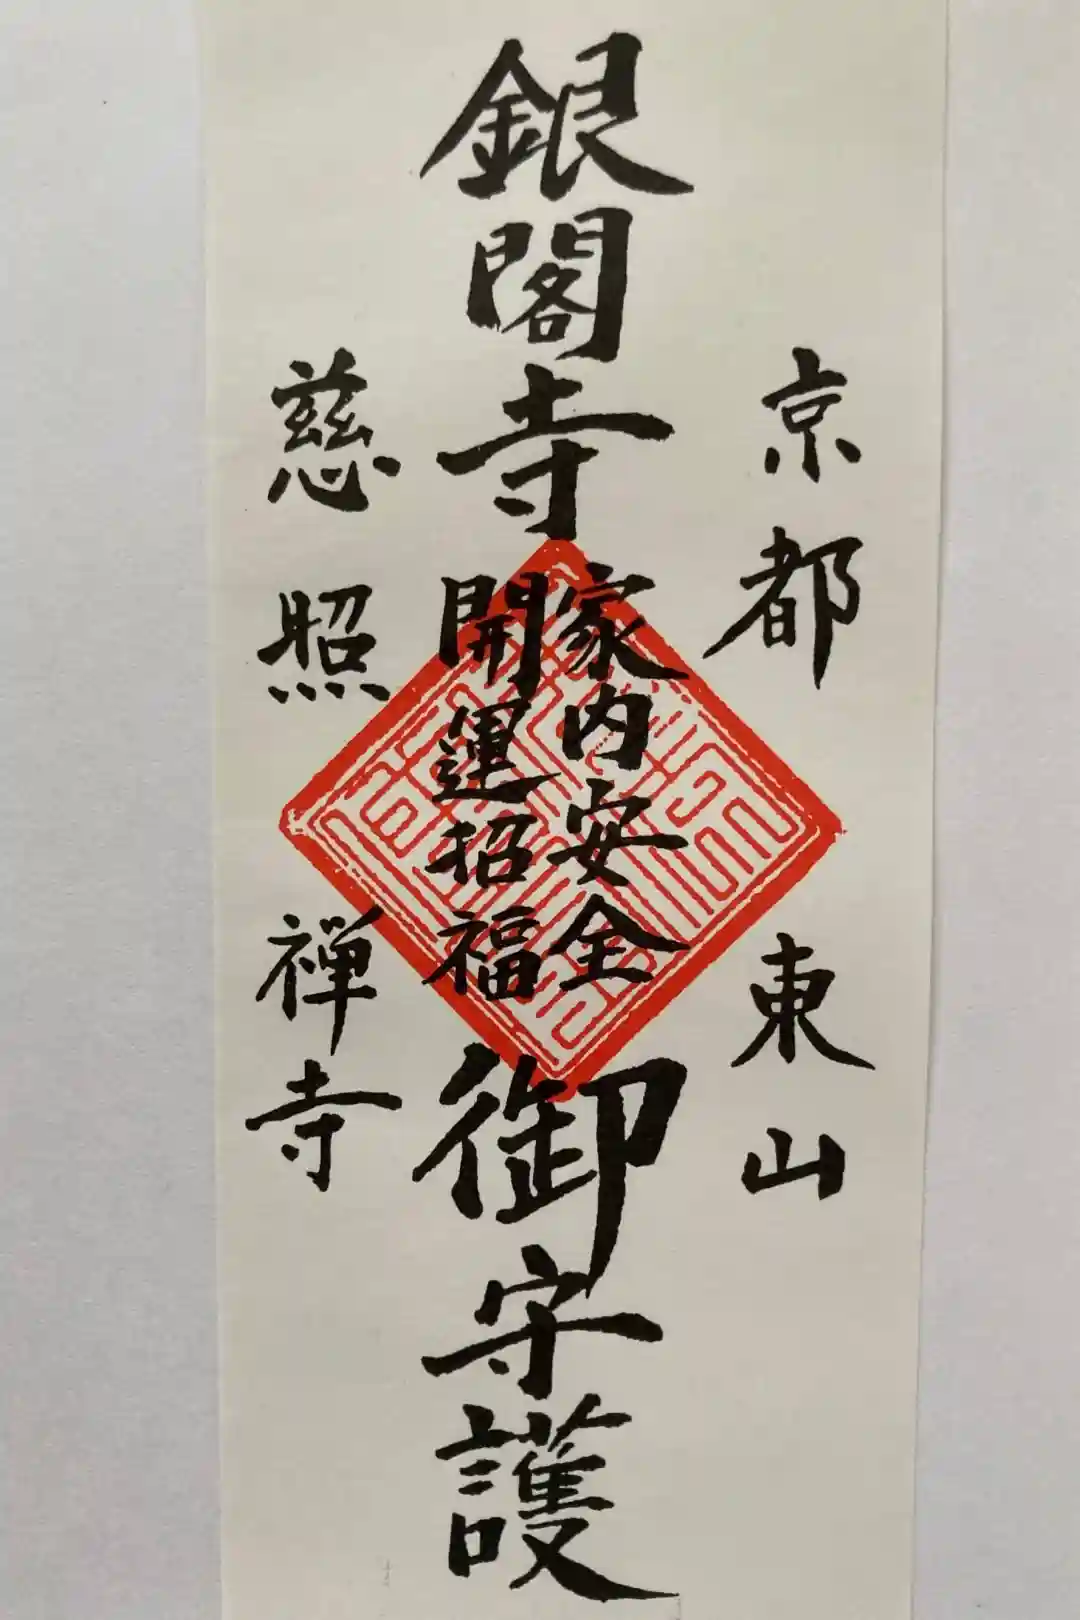 京都東山
銀閣寺
家内安全
開運招福
御守護
慈照禅寺